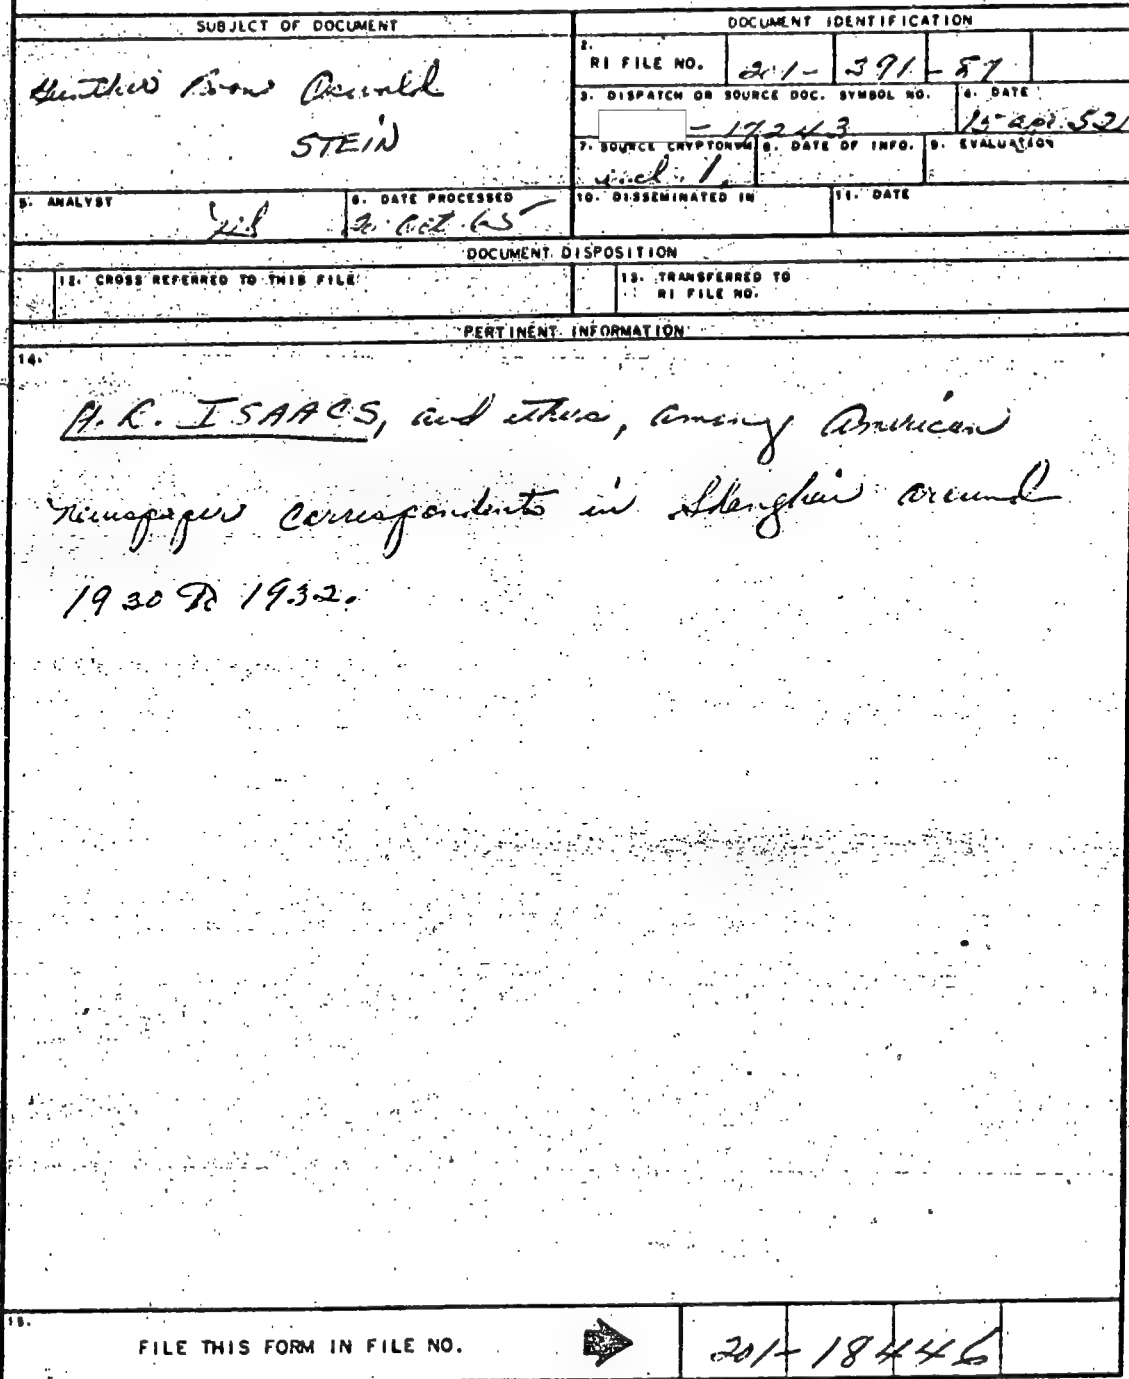 SUBJECT OF DOCUMENT
DOCUMENT IDENTIFICATION
STEIN
2.
RI FILE NO. 201- 391 - 57
3. DISPATCH OR SOURCE DOC. SYMBOL NO.
- 17243
4. DATE
15 apr. 52
7. SOURCE CRYPTONYM
incl. 1.
8. DATE OF INFO.
9. EVALUATION
5. ANALYST
6. DATE PROCESSED
20 Oct. 65
10. DISSEMINATED IN
11. DATE
DOCUMENT DISPOSITION
12. CROSS REFERRED TO THIS FILE
13. TRANSFERRED TO
RI FILE NO.
PERTINENT INFORMATION
14.
H.R. ISAACS, and others, among American
newspaper correspondents in Shanghai around
1930 to 1932.
15.
FILE THIS FORM IN FILE NO.
201-18446